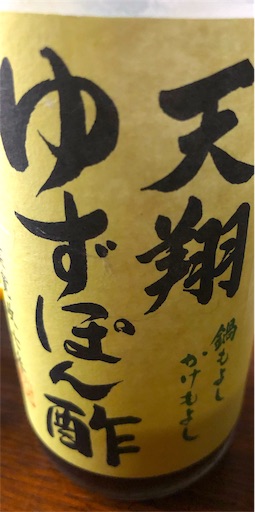 天翔
ゆずぽん酢
鍋もよし
かけもよし